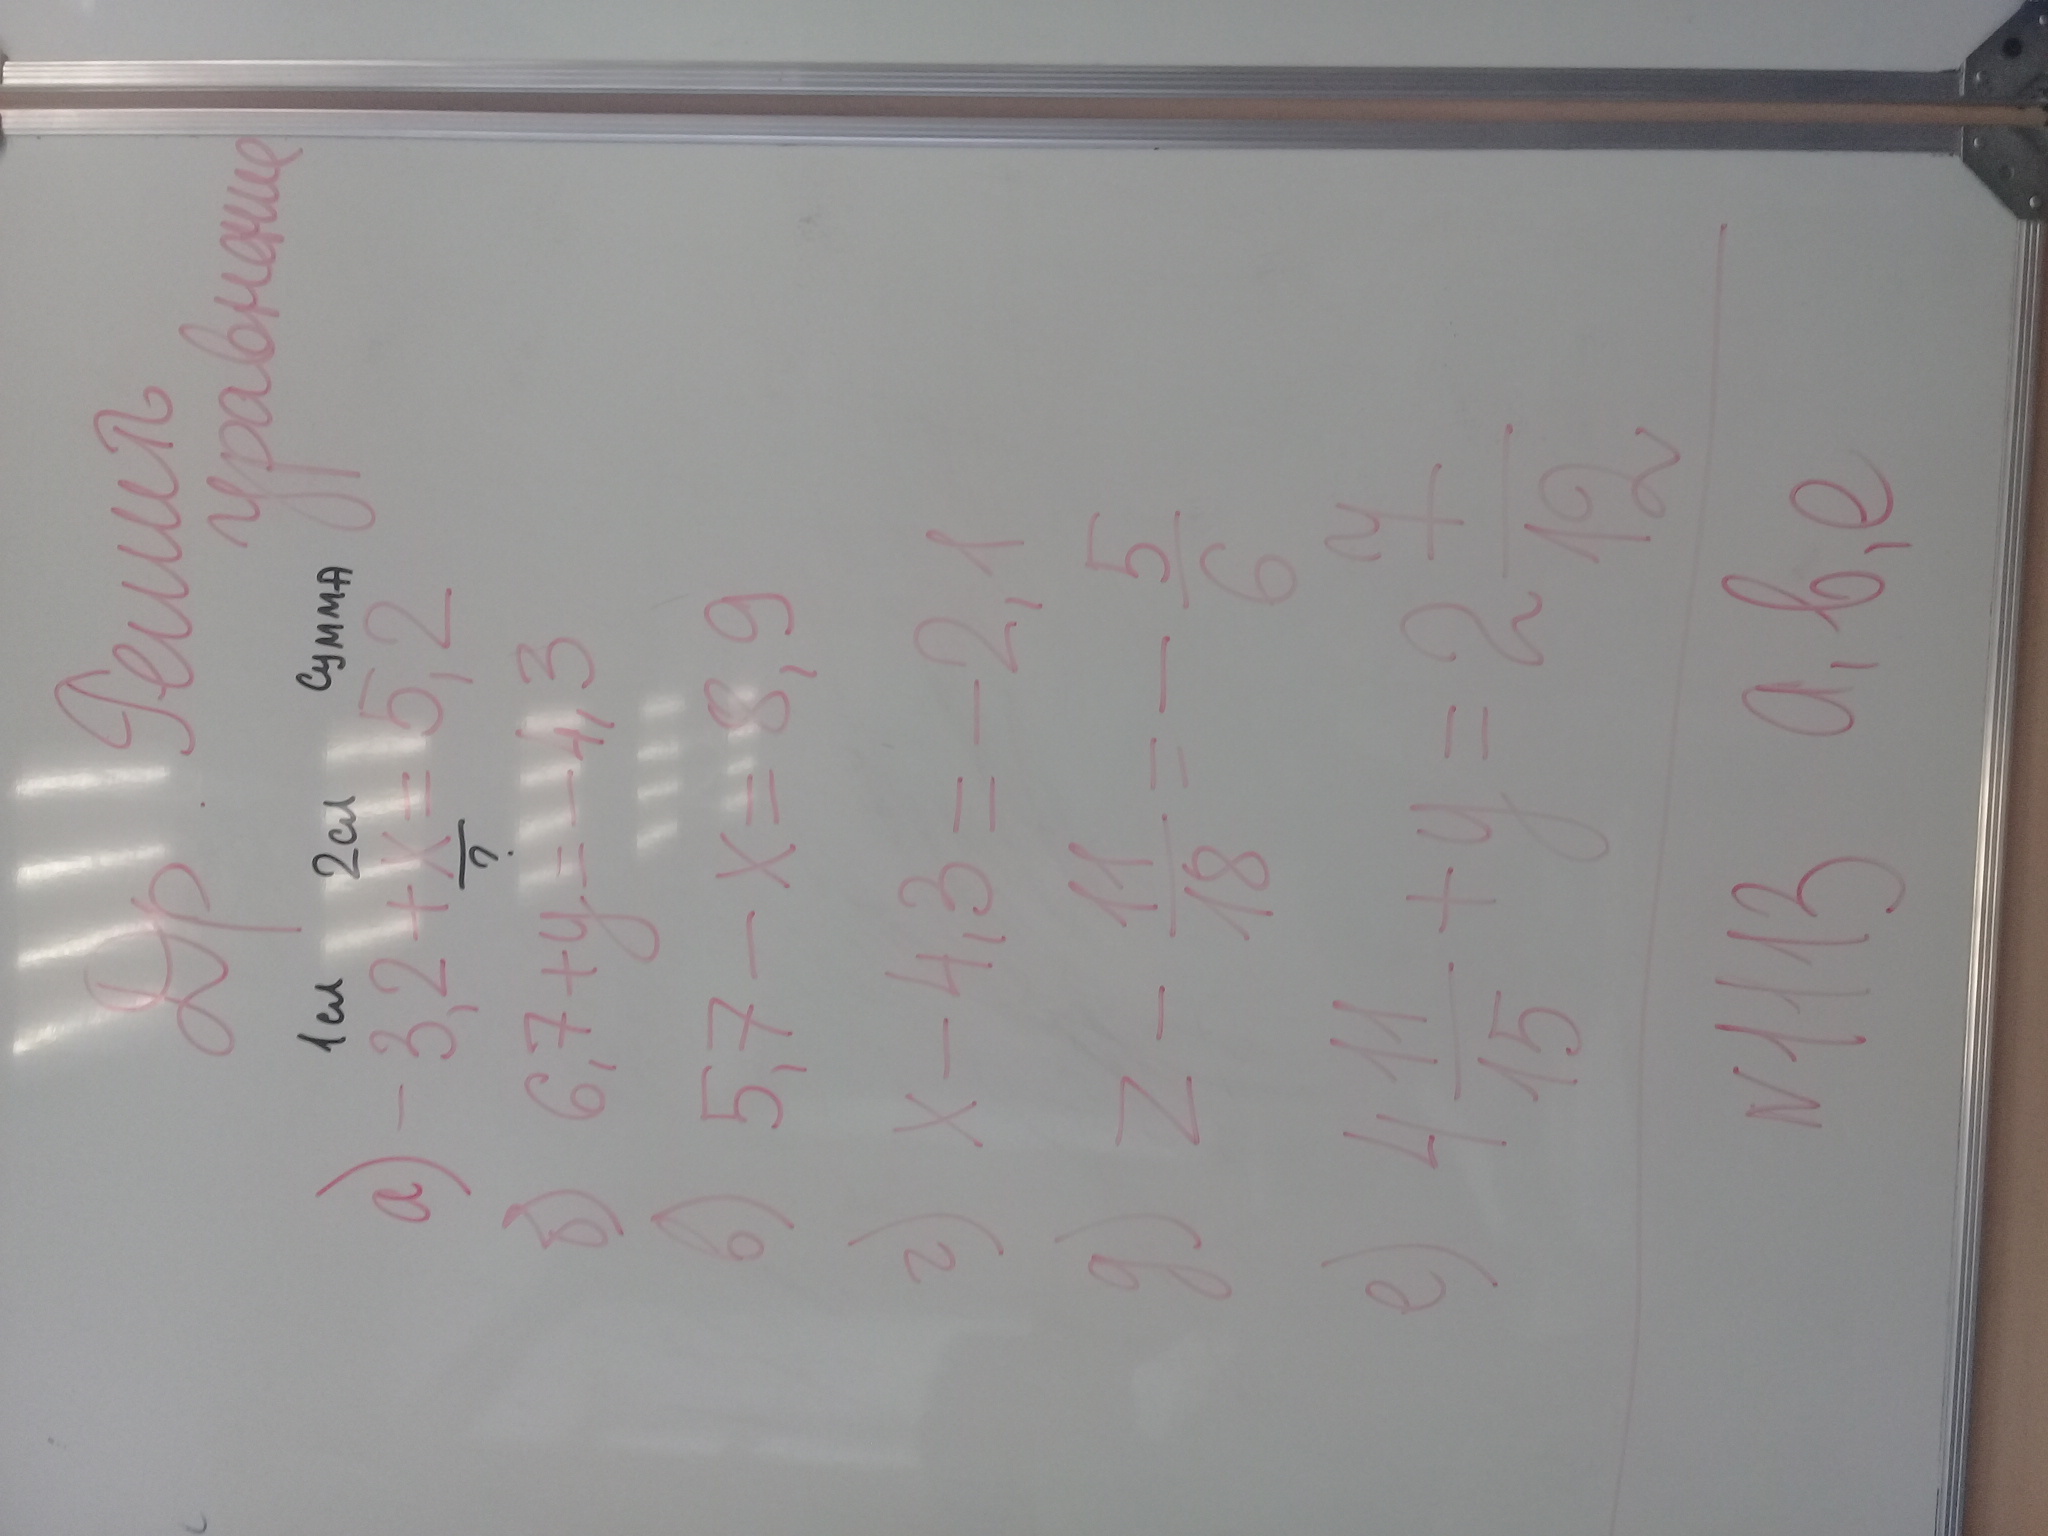 Др Решить
уравнение
1сл 2сл сумма
а) - 3,2 + x = 5,2
?
б) 6,7 + y = - 4,3
в) 5,7 - x = 8,9
г) x - 4,3 = - 2,1
д) z - 11/18 = - 5/6
е) 4 11/15 + y = 2 7/12
N1113 а, в, е